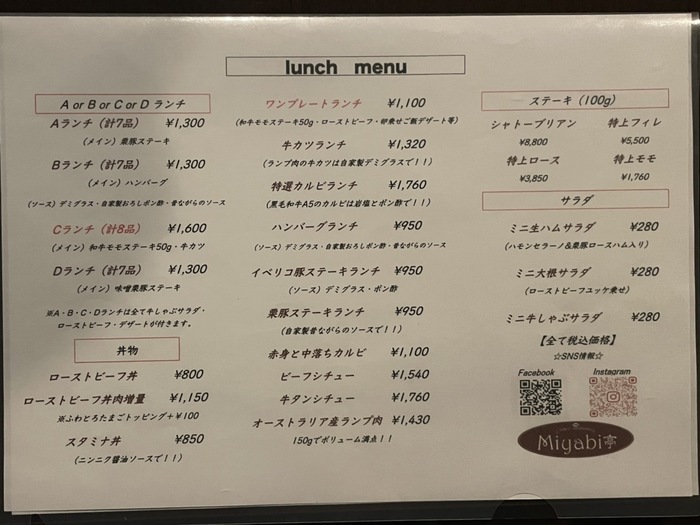 lunch menu
A or B or C or D ランチ
Aランチ（計7品） ¥1,300
（メイン）栗豚ステーキ
Bランチ（計7品） ¥1,300
（メイン）ハンバーグ
（ソース）デミグラス・自家製おろしポン酢・昔ながらのソース
Cランチ（計8品） ¥1,600
（メイン）和牛モモステーキ50g・牛カツ
Dランチ（計7品） ¥1,300
（メイン）味噌栗豚ステーキ
※A・B・C・Dランチは全て牛しゃぶサラダ・
ローストビーフ・デザートが付きます。
丼物
ローストビーフ丼 ¥800
ローストビーフ丼肉増量 ¥1,150
※ふわとろたまごトッピング＋¥100
スタミナ丼 ¥850
（ニンニク醤油ソースで！！）
ワンプレートランチ ¥1,100
（和牛モモステーキ50g・ローストビーフ・卵乗せご飯デザート等）
牛カツランチ ¥1,320
（ランプ肉の牛カツは自家製デミグラスで！！）
特選カルビランチ ¥1,760
（黒毛和牛A5のカルビは岩塩とポン酢で！！）
ハンバーグランチ ¥950
（ソース）デミグラス・自家製おろしポン酢・昔ながらのソース
イベリコ豚ステーキランチ ¥950
（ソース）デミグラス・ポン酢
栗豚ステーキランチ ¥950
（自家製昔ながらのソースで！！）
赤身と中落ちカルビ ¥1,100
ビーフシチュー ¥1,540
牛タンシチュー ¥1,760
オーストラリア産ランプ肉 ¥1,430
150gでボリューム満点！！
ステーキ（100g）
シャトーブリアン 特上フィレ
¥8,800 ¥5,500
特上ロース 特上モモ
¥3,850 ¥1,760
サラダ
ミニ生ハムサラダ ¥280
（ハモンセラーノ&栗豚ロースハム入り）
ミニ大根サラダ ¥280
（ローストビーフユッケ乗せ）
ミニ牛しゃぶサラダ ¥280
【全て税込価格】
☆SNS情報☆
Facebook Instagram
Miyabi亭